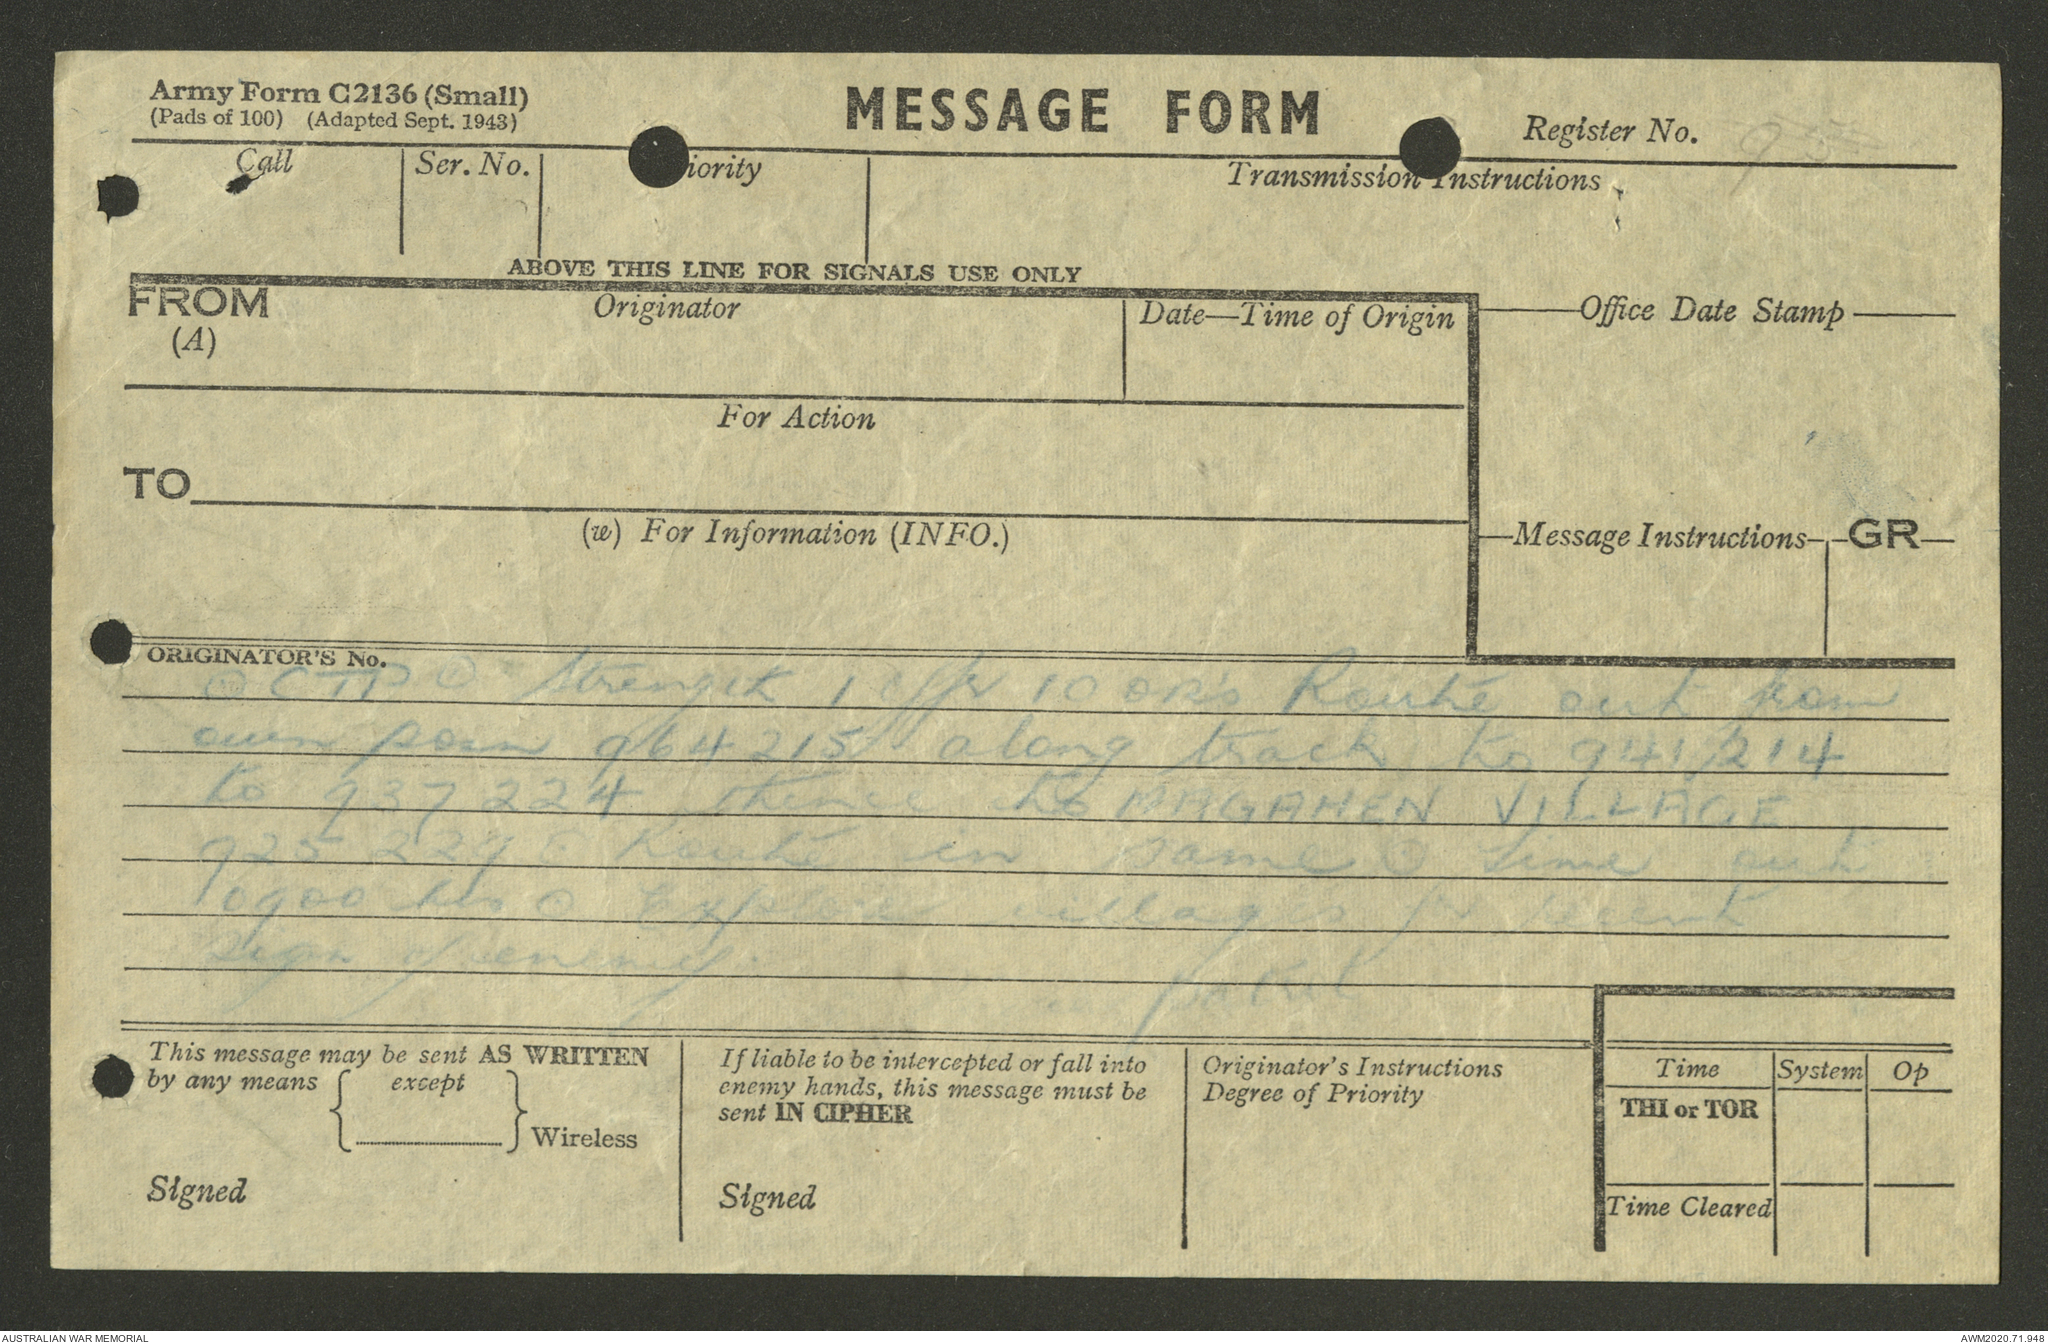 Army Form C2136 (Small)
(Pads of 100) (Adapted Sept. 1943)
MESSAGE FORM
Register No.
Call
Ser. No.
iority
Transmission Instructions
ABOVE THIS LINE FOR SIGNALS USE ONLY
FROM
(A)
Originator
Date—Time of Origin
Office Date Stamp
For Action
TO
(w) For Information (INFO.)
Message Instructions
GR
ORIGINATOR'S No.
Strength 1 offr 10 ORs Route out from
own posn 964215 along track to 941214
to 937224 thence to MAGAHEN VILLAGE
Route in same time out
0900 hrs Explore villages for recent
sign of enemy.
patrol
This message may be sent AS WRITTEN
by any means { except } Wireless
Signed
If liable to be intercepted or fall into
enemy hands, this message must be
sent IN CIPHER
Signed
Originator's Instructions
Degree of Priority
Time
System
Op
THI or TOR
Time Cleared
AUSTRALIAN WAR MEMORIAL
AWM2020.71.948